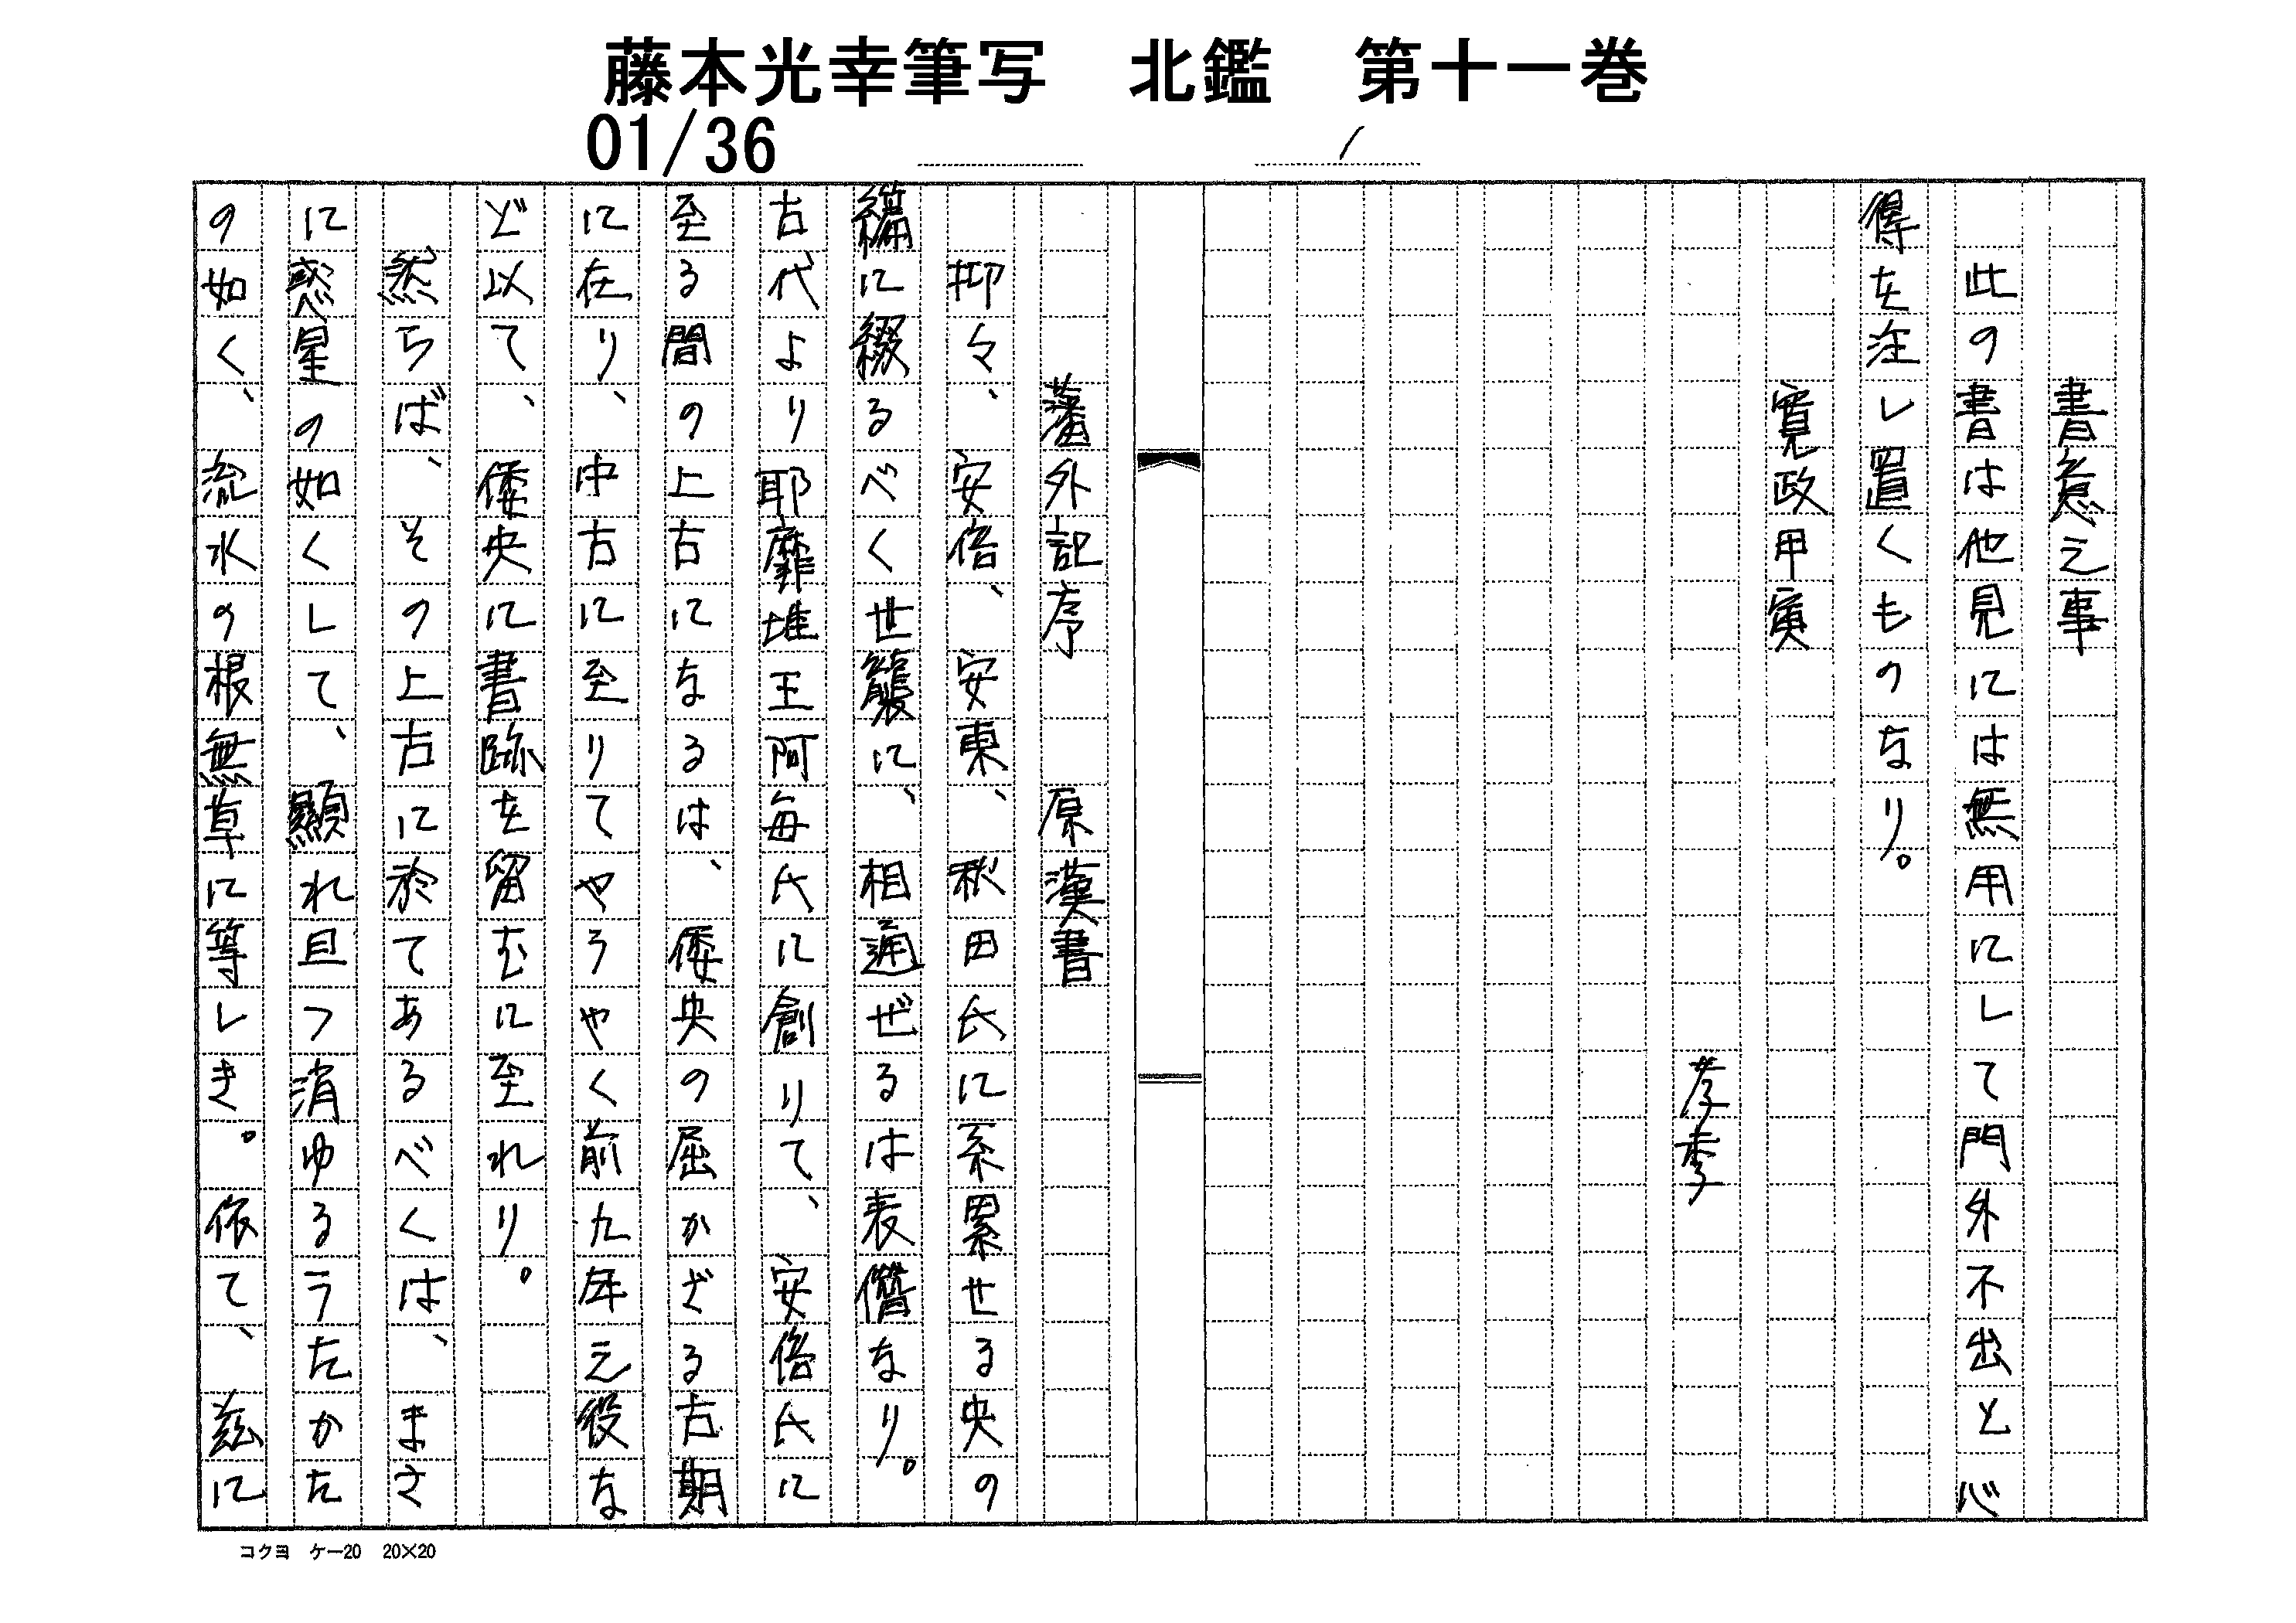 藤本光幸筆写　北鑑　第十一巻
01/36
書意之事
此の書は他見には無用にして門外不出と心
得を注し置くものなり。
寛政甲寅
孝季
藩外記序　原漢書
抑々、安倍、安東、秋田氏に系累せる史の
編に綴るべく世襲に、相通ぜるは表儹なり。
古代より耶靡堆王阿毎氏に創りて、安倍氏に
至る間の上古になるは、倭史の届かざる古期
に在り、中古に至りてやうやく前九年之役な
ど以て、倭史に書跡を留むに至れり。
然らば、その上古に於てあるべくは、まさ
に惑星の如くして、顕れ且つ消ゆるうたかた
の如く、流水の根無草に等しき。依て、茲に
コクヨ　ケー20　20×20